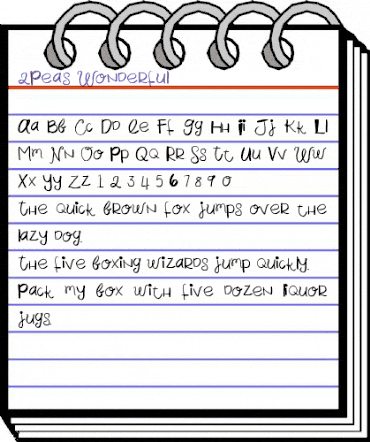 2Peas Wonderful
Aa Bb Cc Dd Ee Ff Gg Hh Ii Jj Kk Ll
Mm Nn Oo Pp Qq Rr Ss Tt Uu Vv Ww
Xx Yy Zz 1 2 3 4 5 6 7 8 9 0
the quick brown fox jumps over the
lazy dog.
the five boxing wizards jump quickly.
Pack my box with five dozen liquor
jugs